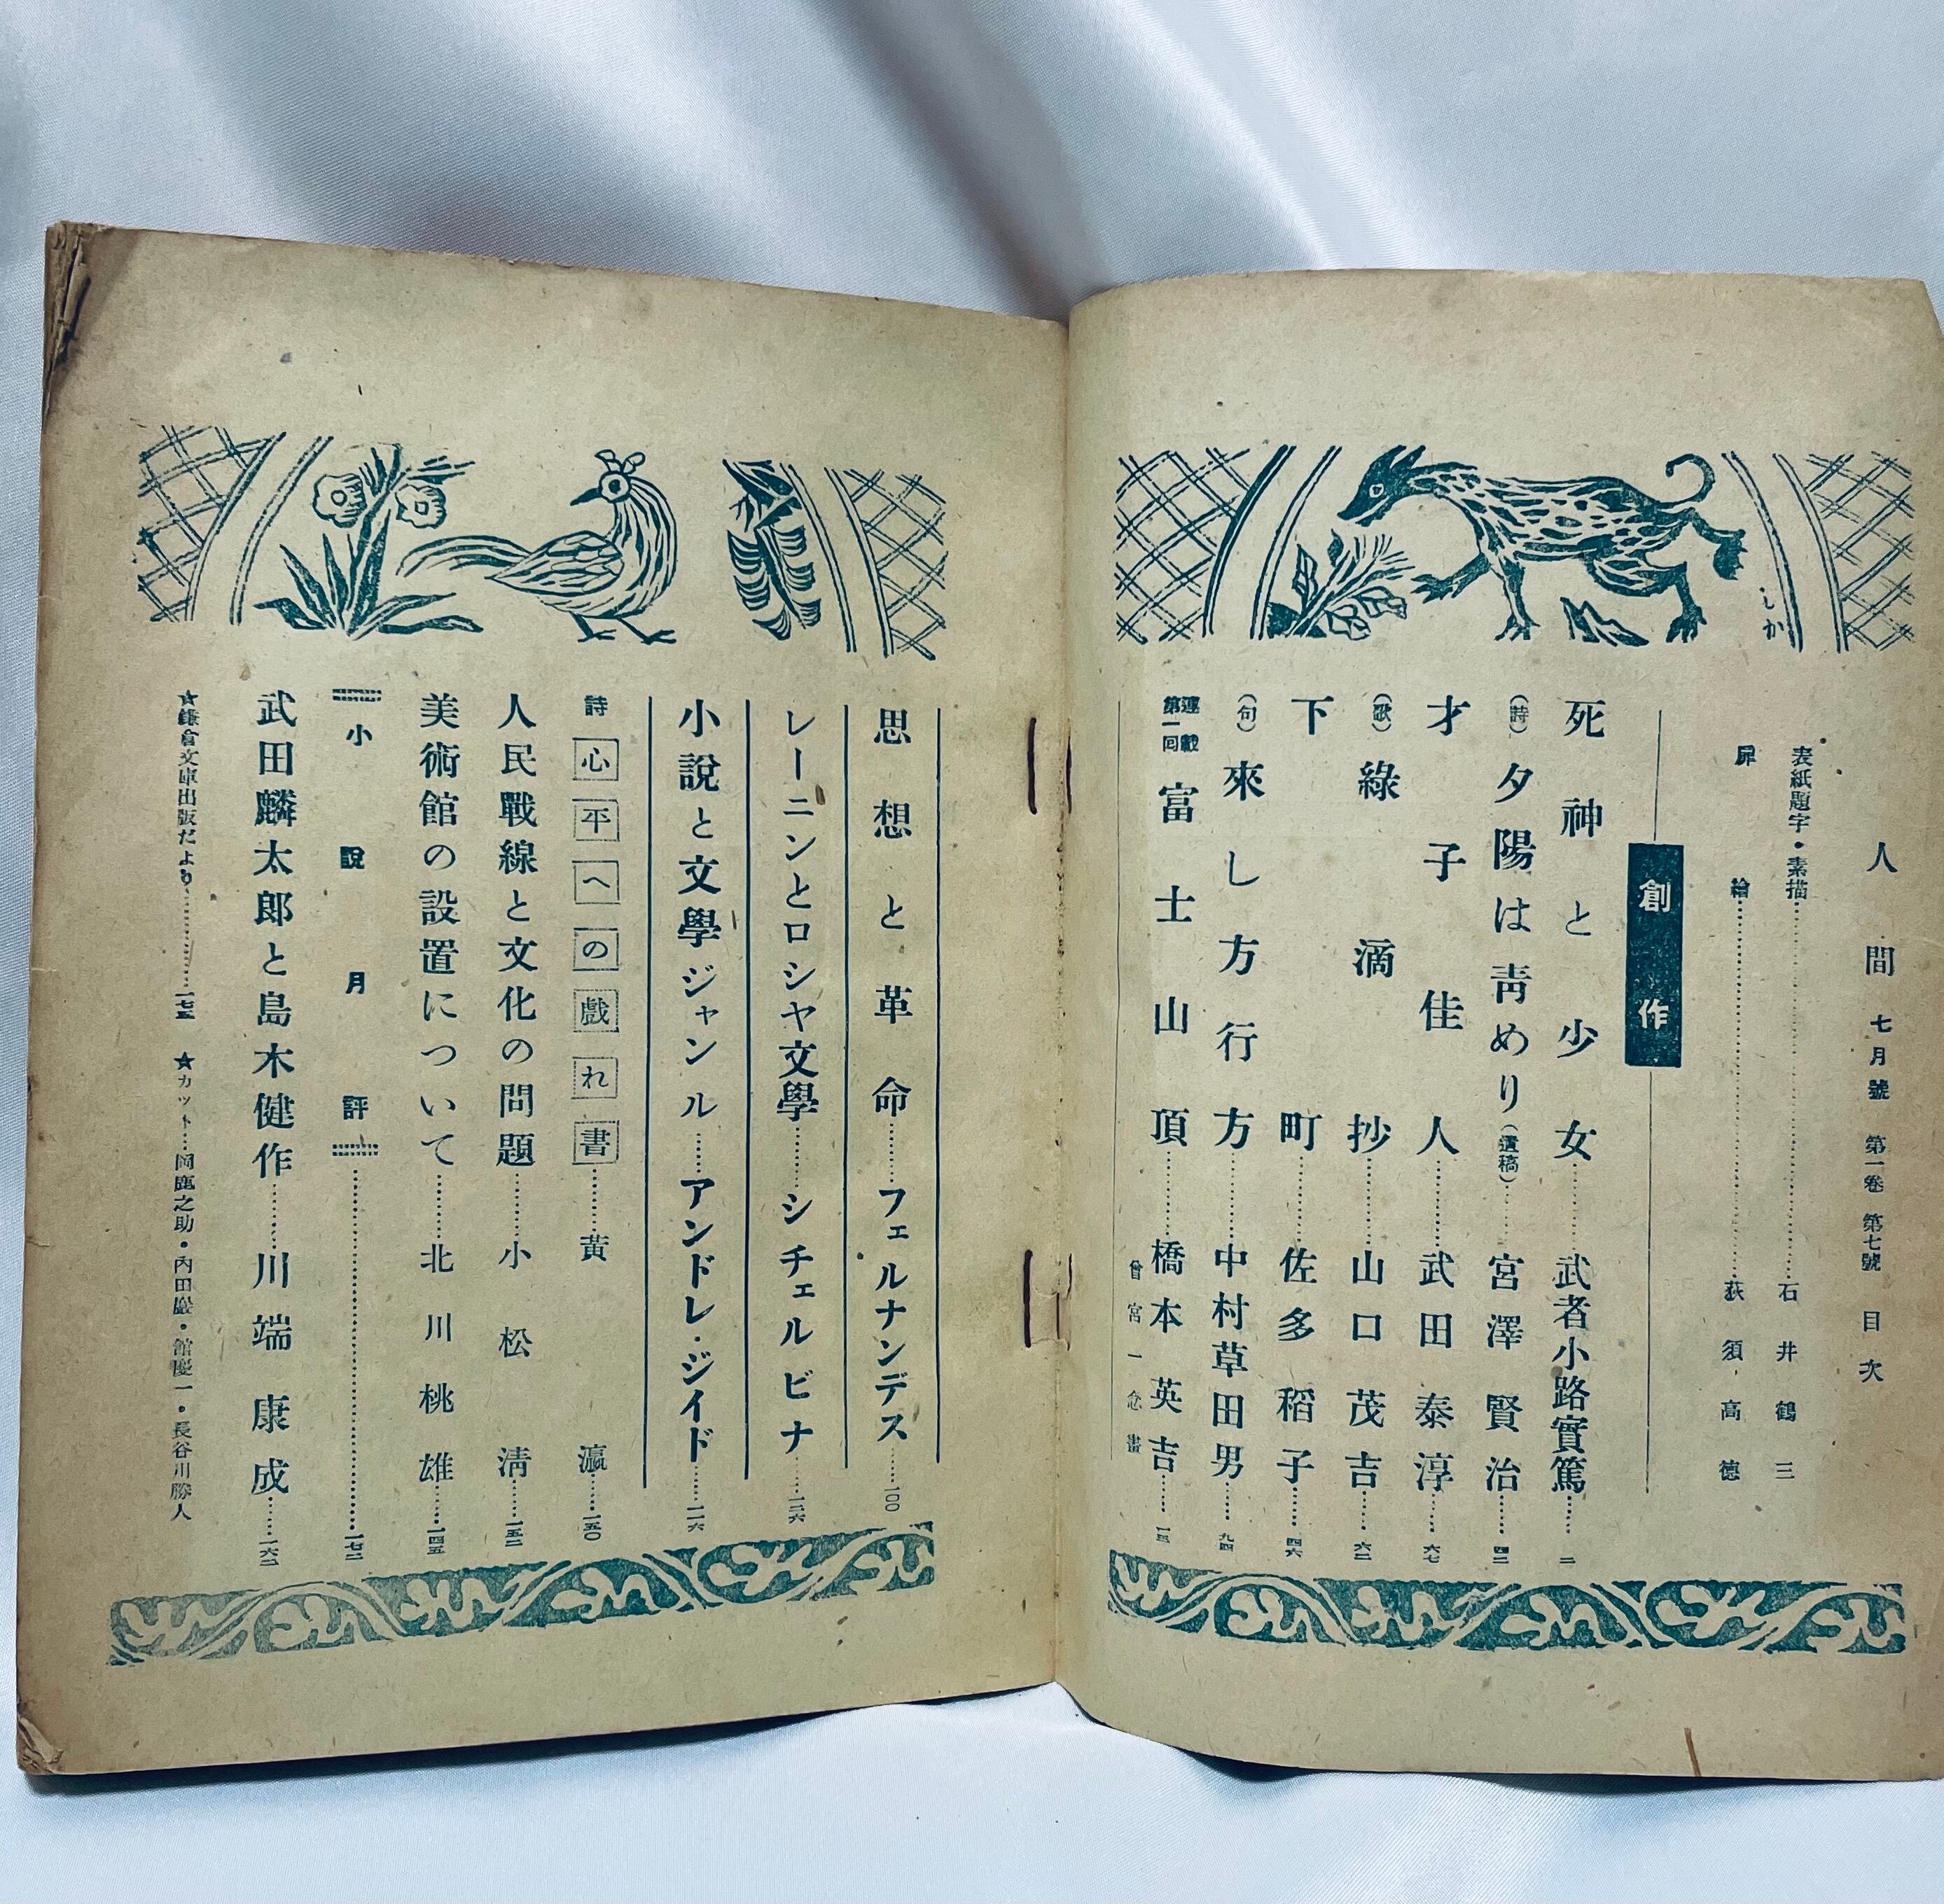 人間 七月號 第一卷 第七號 目次
表紙題字・素描………石井鶴三
扉繪………荻須高德
創作
死神と少女……武者小路實篤……二
(詩)夕陽は靑めり(遺稿)……宮澤賢治……四二
才子佳人……武田泰淳……六七
(歌)綠滴抄……山口茂吉……六二
下町……佐多稻子……四六
(句)來し方行方……中村草田男……九四
連載第一回 富士山頂……橋本英吉……
曾宮一念畫
しか
思想と革命……フェルナンデス……100
レーニンとロシヤ文學……シチェルビナ……一三六
小說と文學ジャンル……アンドレ・ジイド……一一六
詩 心平への戲れ書……黃瀛……一五〇
人民戰線と文化の問題……小松淸……一五二
美術館の設置について……北川桃雄……一四五
小說月評……一七二
武田麟太郎と島木健作……川端康成……一六二
★鎌倉文庫出版だより…… ★カット…岡鹿之助・內田巖・館慶一・長谷川勝人